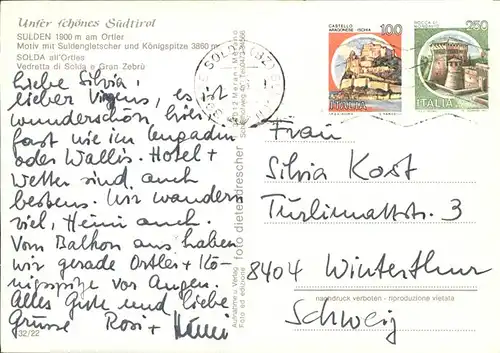 Unser schönes Südtirol
SULDEN 1900 m am Ortler
Motiv mit Suldengletscher und Königspitze 3860 m
SOLDA all'Ortles
Vedretta di Solda e Gran Zebrù
Liebe Silvia,
lieber es
wunderschön hier
fast wie im Engadin
oder Wallis. Hotel +
Wetter sind auch
bestens. Wir wandern
viel, Heini auch.
Vom Balkon aus haben
wir gerade Ortler + Kö-
nigspitze vor Augen.
Alles Gute und liebe
Grüsse Rosi +
32/22
Aufnahme u. Verlag
Foto ed edizione
foto dieter drescher
Meran - Merano
CASTELLO
ARAGONESE ISCHIA
100
ITALIA
ROCCA DI
250
ITALIA
Frau
Silvia Kost
Türlimattstr. 3
8404 Winterthur
nachdruck verboten - riproduzione vietata
Schweiz